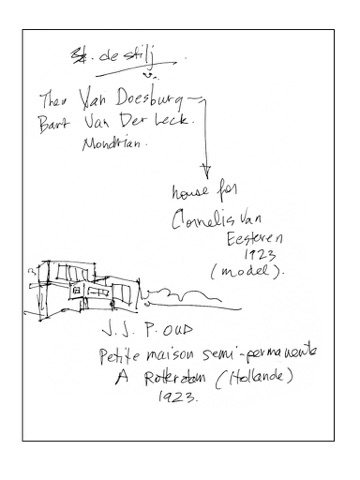 de stilj
Theo Van Doesburg
Bart Van Der Leck.
Mondrian.
house for
Cornelis van
Eesteren
1923
(model).
J.J. P. OUD
Petite maison semi-permanente
A Rotterdam (Hollande)
1923.